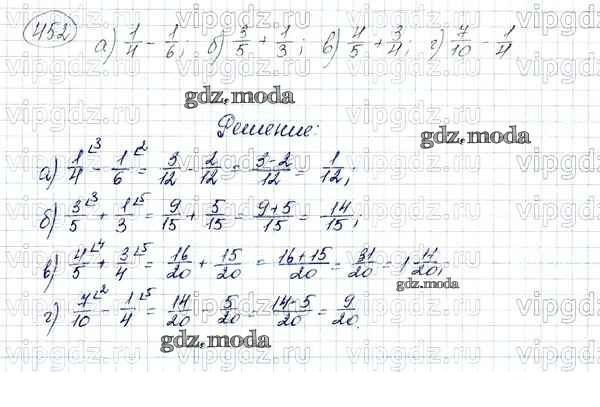 452 а) 1/4 - 1/6; б) 3/5 + 1/3; в) 4/5 + 3/4; г) 7/10 - 1/4
gdz.moda
Решение:
gdz.moda
а) 1/4 ⌞3 - 1/6 ⌞2 = 3/12 - 2/12 = 3-2/12 = 1/12;
б) 3/5 ⌞3 + 1/3 ⌞5 = 9/15 + 5/15 = 9+5/15 = 14/15;
в) 4/5 ⌞4 + 3/4 ⌞5 = 16/20 + 15/20 = 16+15/20 = 31/20 = 1 11/20;
gdz.moda
г) 7/10 ⌞2 - 1/4 ⌞5 = 14/20 - 5/20 = 14-5/20 = 9/20.
gdz.moda